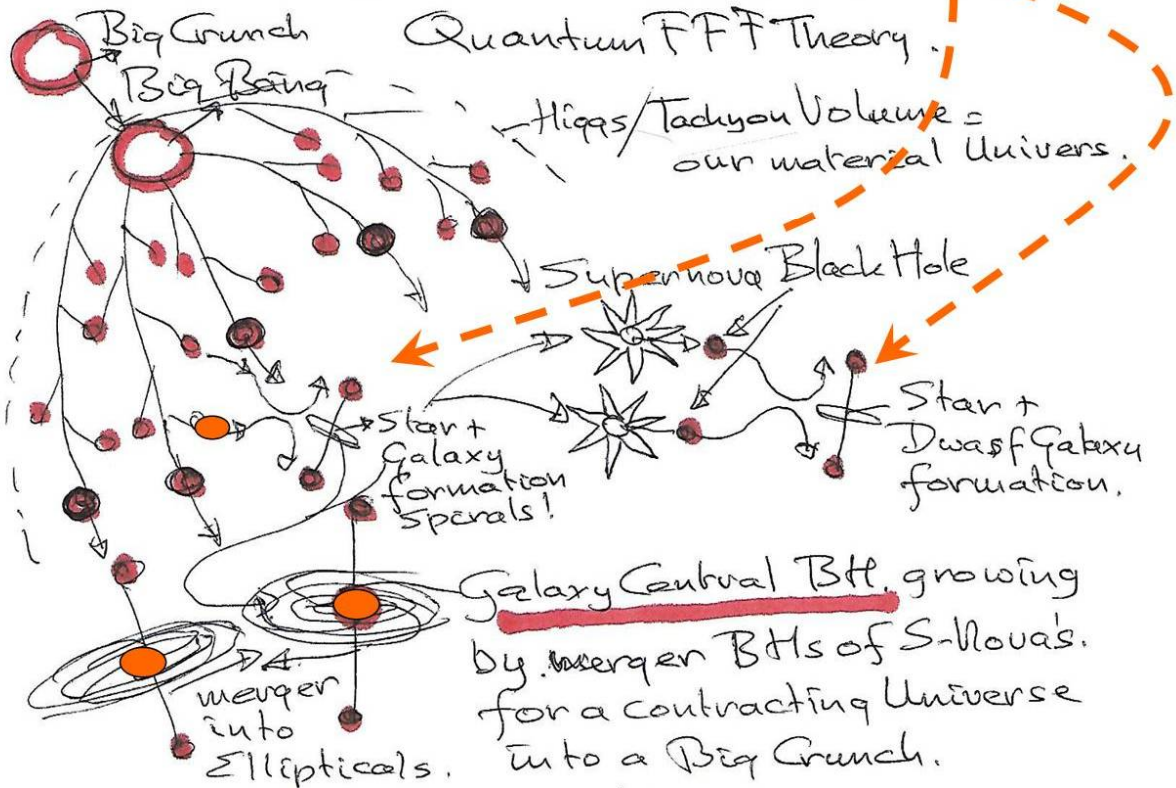 Big Crunch
Quantum FFF Theory.
Big Bang
Higgs/Tachyon Volume =
our material Univers.
Supernova Black Hole
Star +
Galaxy
formation
spirals!
Star +
Dwasf Galaxy
formation.
Galaxy Central BH. growing
by merger BHs of S-Nova's.
for a contracting Universe
into a Big Crunch.
merger
into
Ellipticals.